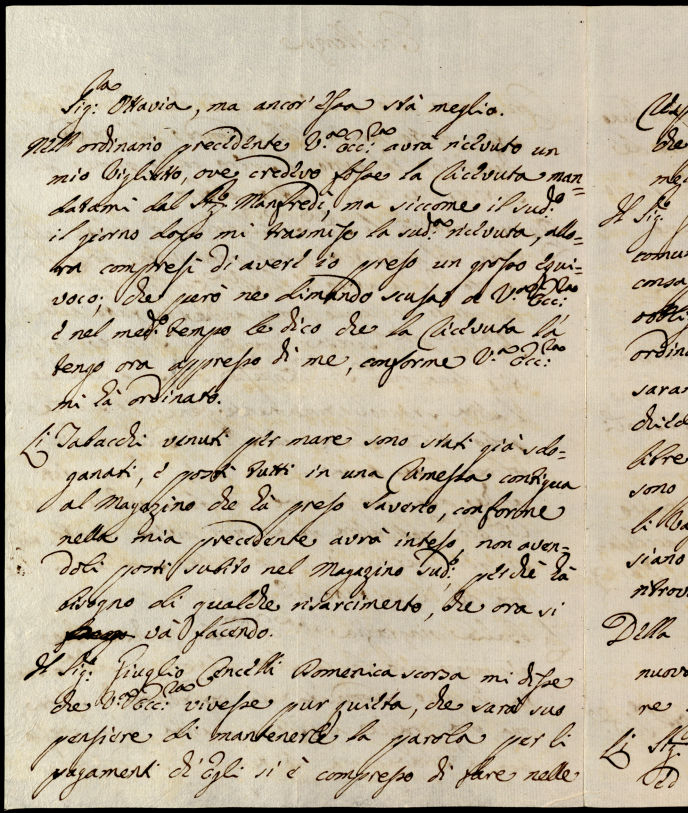 Sig.ra Ottavia, ma ancor' essa stà meglio.
Nell' ordinario precedente V.ra Ecc.za avrà ricevuto un
mio Viglietto, ove credevo fosse la Ricevuta man=
datami dal Sig.r Manfredi, ma siccome il sud.o
il giorno dopo mi trasmise la sud.a ricevuta, allo=
ra compresi di avere io preso un grosso equi=
voco; che però ne dimando scusa a V.ra Ecc.za
è nel med.o tempo le dico che la Ricevuta la
tengo ora appresso di me, conforme V.ra Ecc.za
mi hà ordinato.
Li Tabacchi venuti per mare sono stati già sdo=
ganati, è posti tutti in una Rimessa contigua
al Magazino che hà preso Saverio, conforme
nella mia precedente avrà inteso, non aven=
doli posti subito nel Magazino sud.o, perchè hà
bisogno di qualche risarcimento, che ora si
và facendo.
Il Sig.r Giuglio Cencelli Domenica scorsa mi disse
che V.ra Ecc.za vivesse pur quieta, che sarà suo
pensiere di mantenerle la parola per li
pagamenti ch' Egli si è compresso di fare nelle
che
Il Sig.r
comu
consa
ordina
sara
chied
libre
sono
li Ba
siano
ritrov
Della
nuovo
re
Li